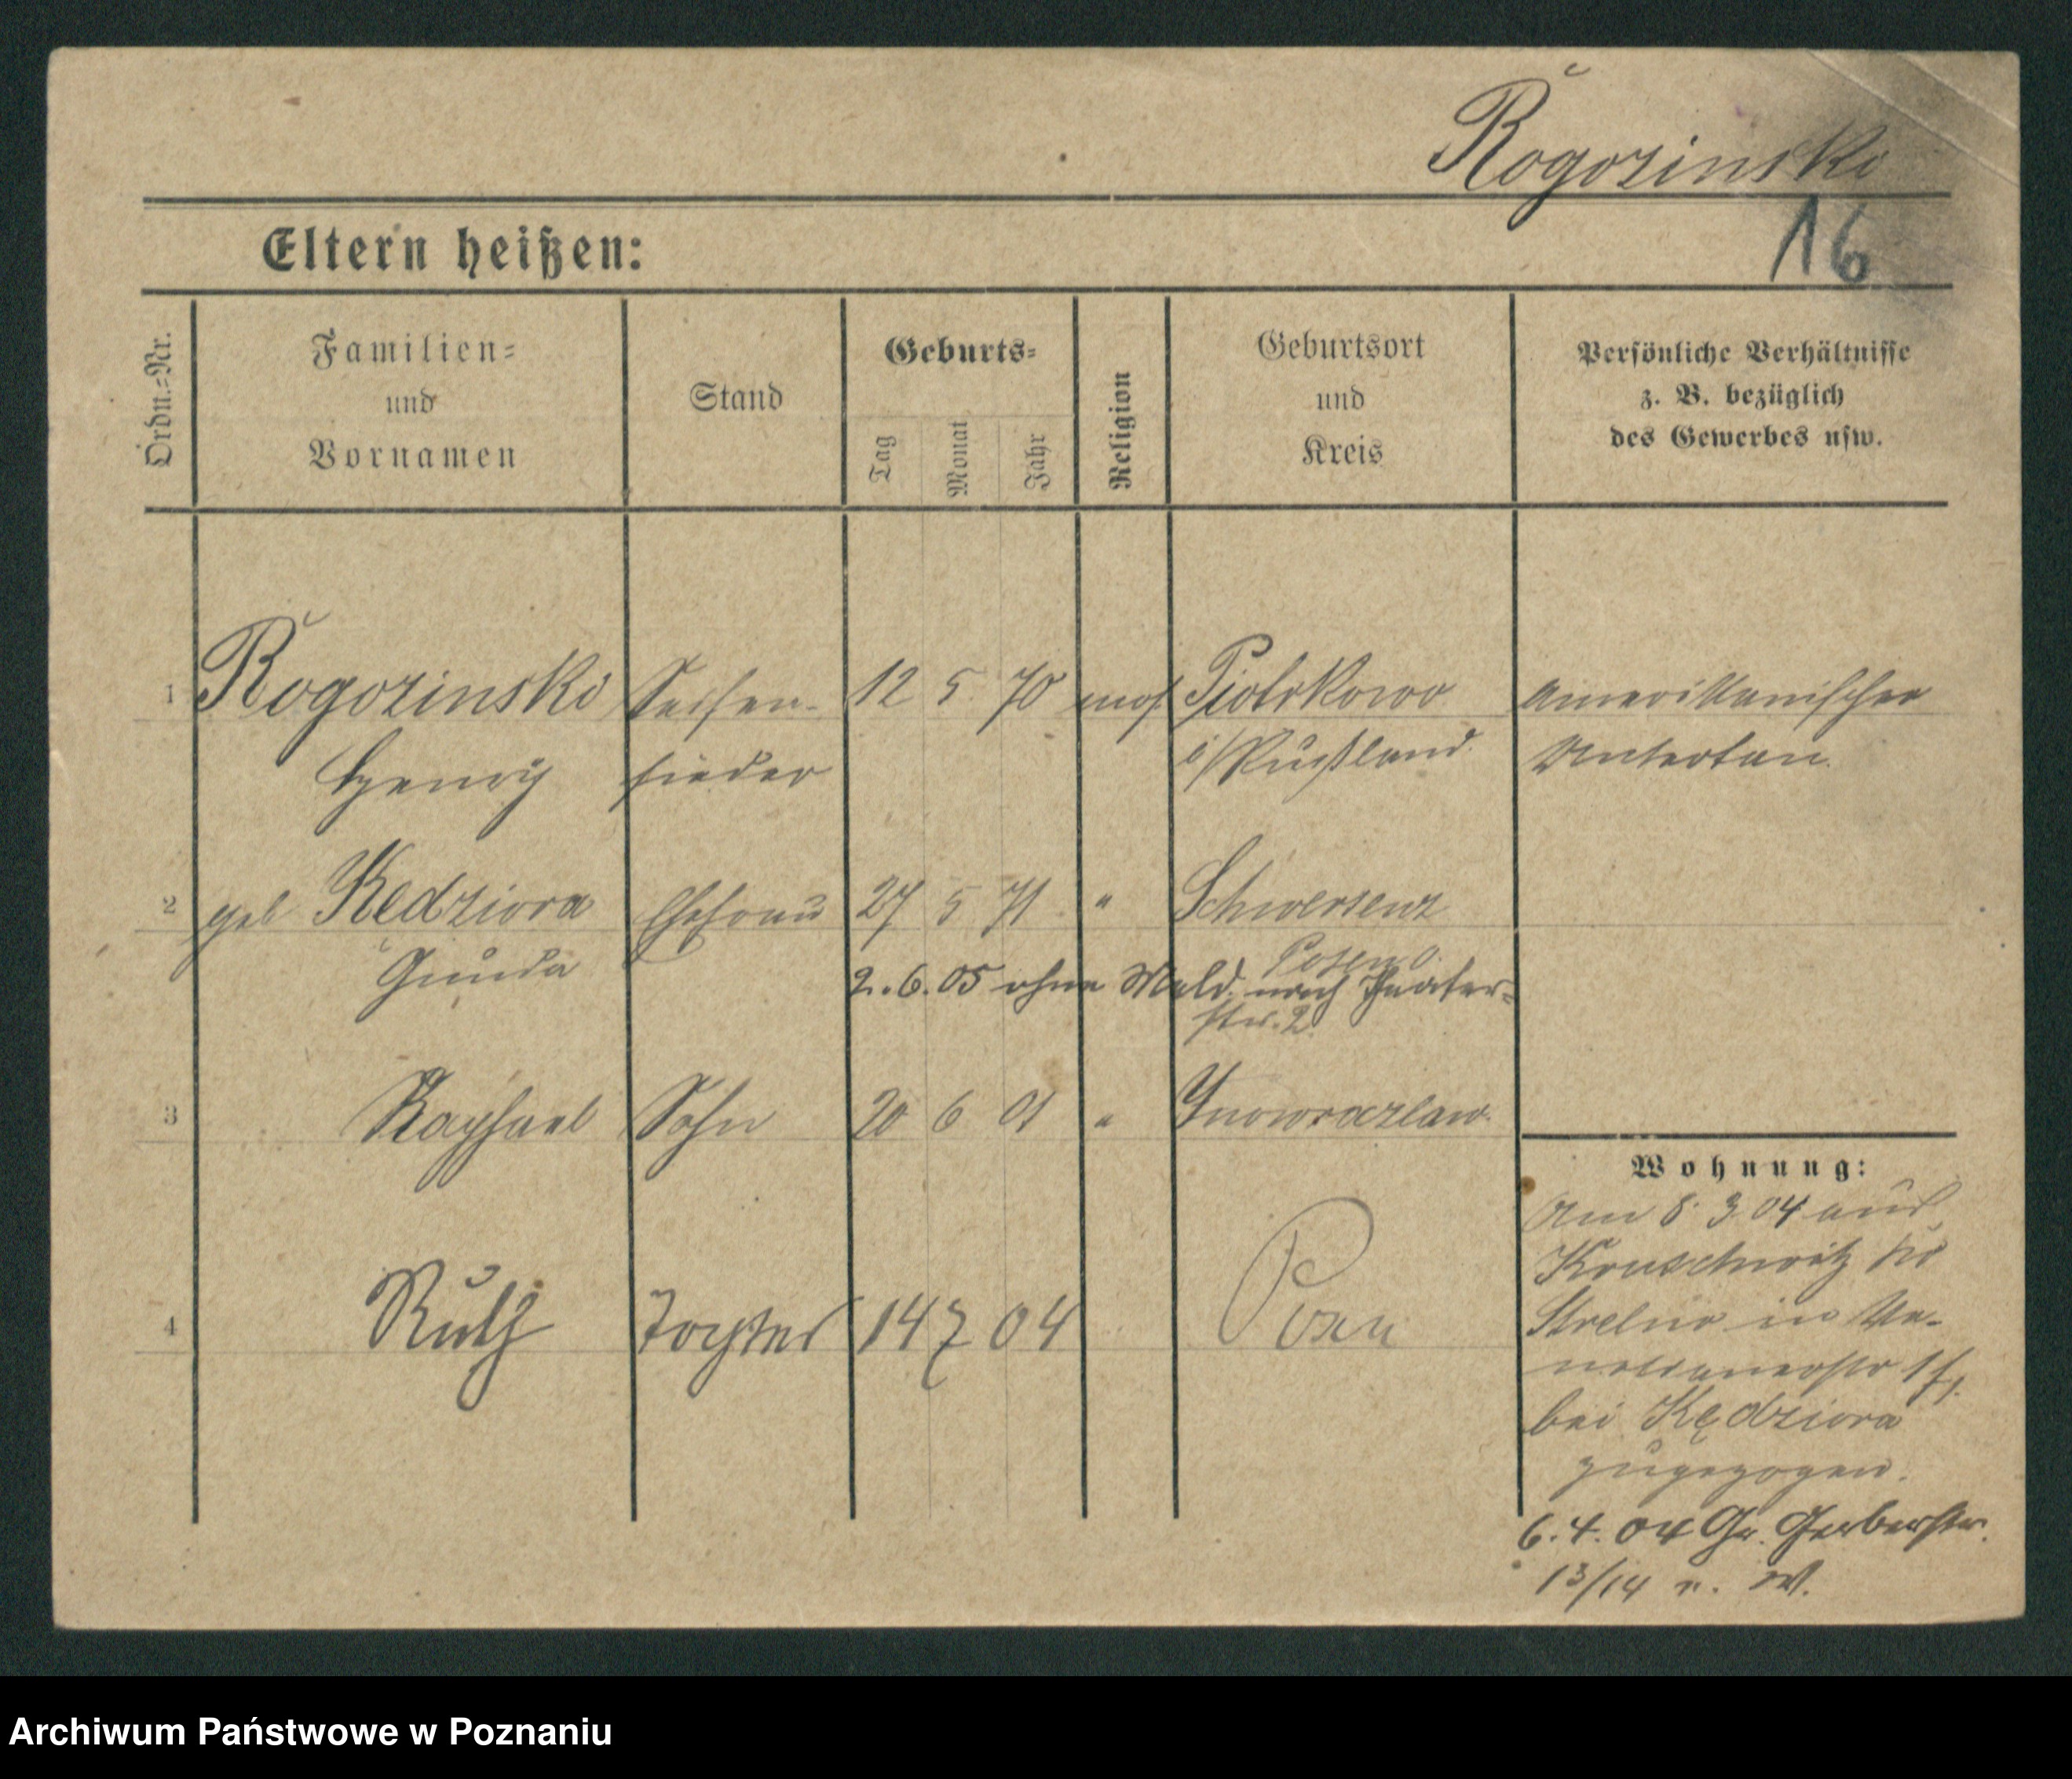 Rogozinski
16
Eltern heißen:
Ordn.=Nr.
Familien=
und
Vornamen
Stand
Geburts=
Tag
Monat
Jahr
Religion
Geburtsort
und
Kreis
Persönliche Verhältnisse
z. B. bezüglich
des Gewerbes usw.
1 Rogozinski Seifen- 12 5 70 mos. Piotrkowo Amerikanischer
Henry sieder i/Rußland. Untertan.
2 geb Kedziora Ehefrau 27 5 71 " Schwersenz
Posen O.
2. 6. 05 ohne Meld. nach
str. 2.
3 Raphael Sohn 20 6 01 " Inowrazlaw.
4 Ruth Tochter 14 7 04 Posen
Wohnung:
Am 8. 3. 04 aus
Kruschwitz Kr
Strelno in Ve-
netianerstr
bei Kędziora
zugezogen.
6. 4. 04 Gr. Gerberstr.
13/14 n. W.
Archiwum Państwowe w Poznaniu